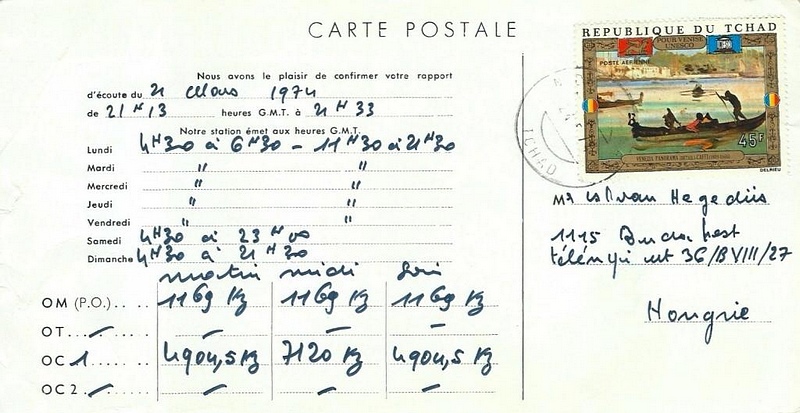 CARTE POSTALE
REPUBLIQUE DU TCHAD
POUR VENISE
UNESCO
POSTE AERIENNE
45F
DELRIEU
TCHAD
Nous avons le plaisir de confirmer votre rapport
d'écoute du 21 Mars 1974
de 21H13 heures G.M.T. à 21H33
Notre station émet aux heures G.M.T.
Lundi 4H30 à 6H30 - 11H30 à 21H30
Mardi " "
Mercredi " "
Jeudi " "
Vendredi " "
Samedi 4H30 à 23H00
Dimanche 4H30 à 21H30
matin midi Soir
OM (P.O.) 1169 Kz 1169 Kz 1169 Kz
OT - - - -
OC 1 4904,5 Kz 7120 Kz 4904,5 Kz
OC 2 - - - -
Mr Istvan Hegedüs
1115 Budapest
télényi ut 36/BVIII/27
Hongrie